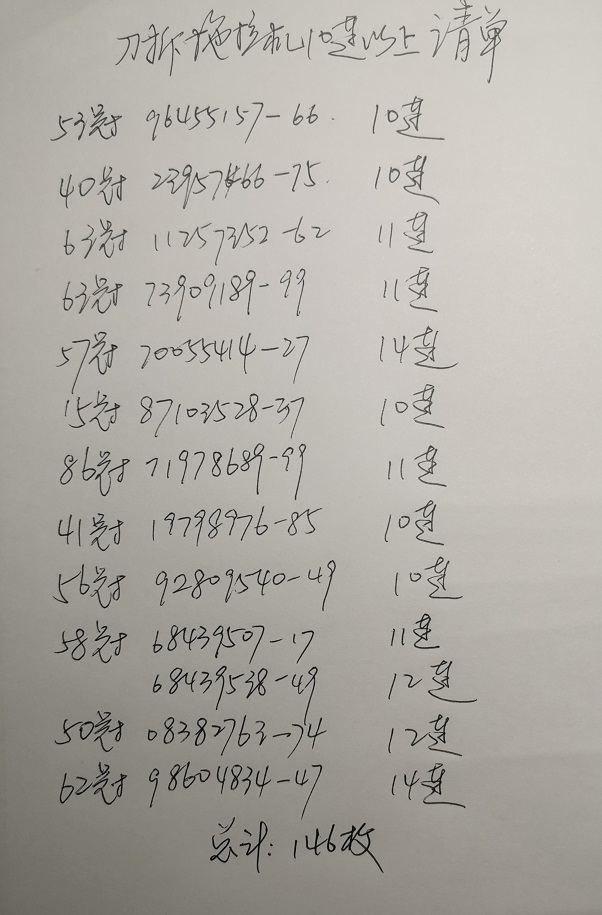 刀拆拖拉机10连以上清单
53冠 96455157-66. 10连
40冠 23957466-75. 10连
63冠 11257352-62 11连
63冠 73909189-99 11连
57冠 20055414-27 14连
15冠 87103528-37 10连
86冠 71978689-99 11连
41冠 19798976-85 10连
56冠 92809540-49 10连
58冠 68439507-17 11连
68439538-49 12连
50冠 08382763-74 12连
62冠 98604834-47 14连
总计: 146枚